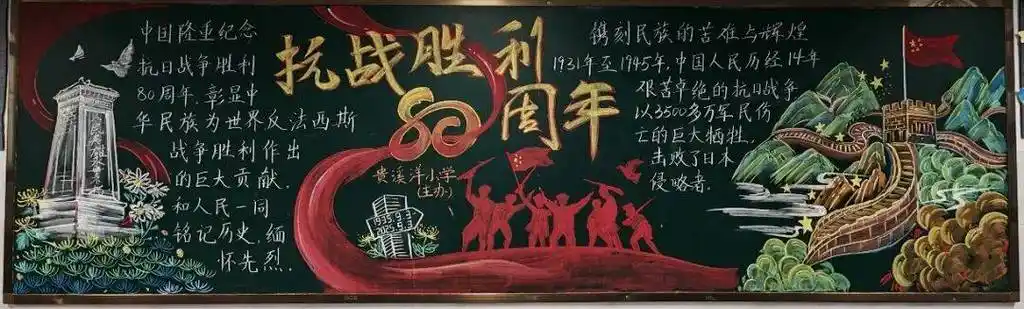 中国隆重纪念
抗日战争胜利
80周年,彰显中
华民族为世界反法西斯
战争胜利作出
的巨大贡献,
和人民一同
铭记历史,缅
怀先烈.
抗战胜利
80周年
贵溪洋小学
(主办)
镌刻民族的苦难与辉煌
1931年至1945年,中国人民历经14年
艰苦卓绝的抗日战争
以3500多万军民伤
亡的巨大牺牲,
击败了日本
侵略者.